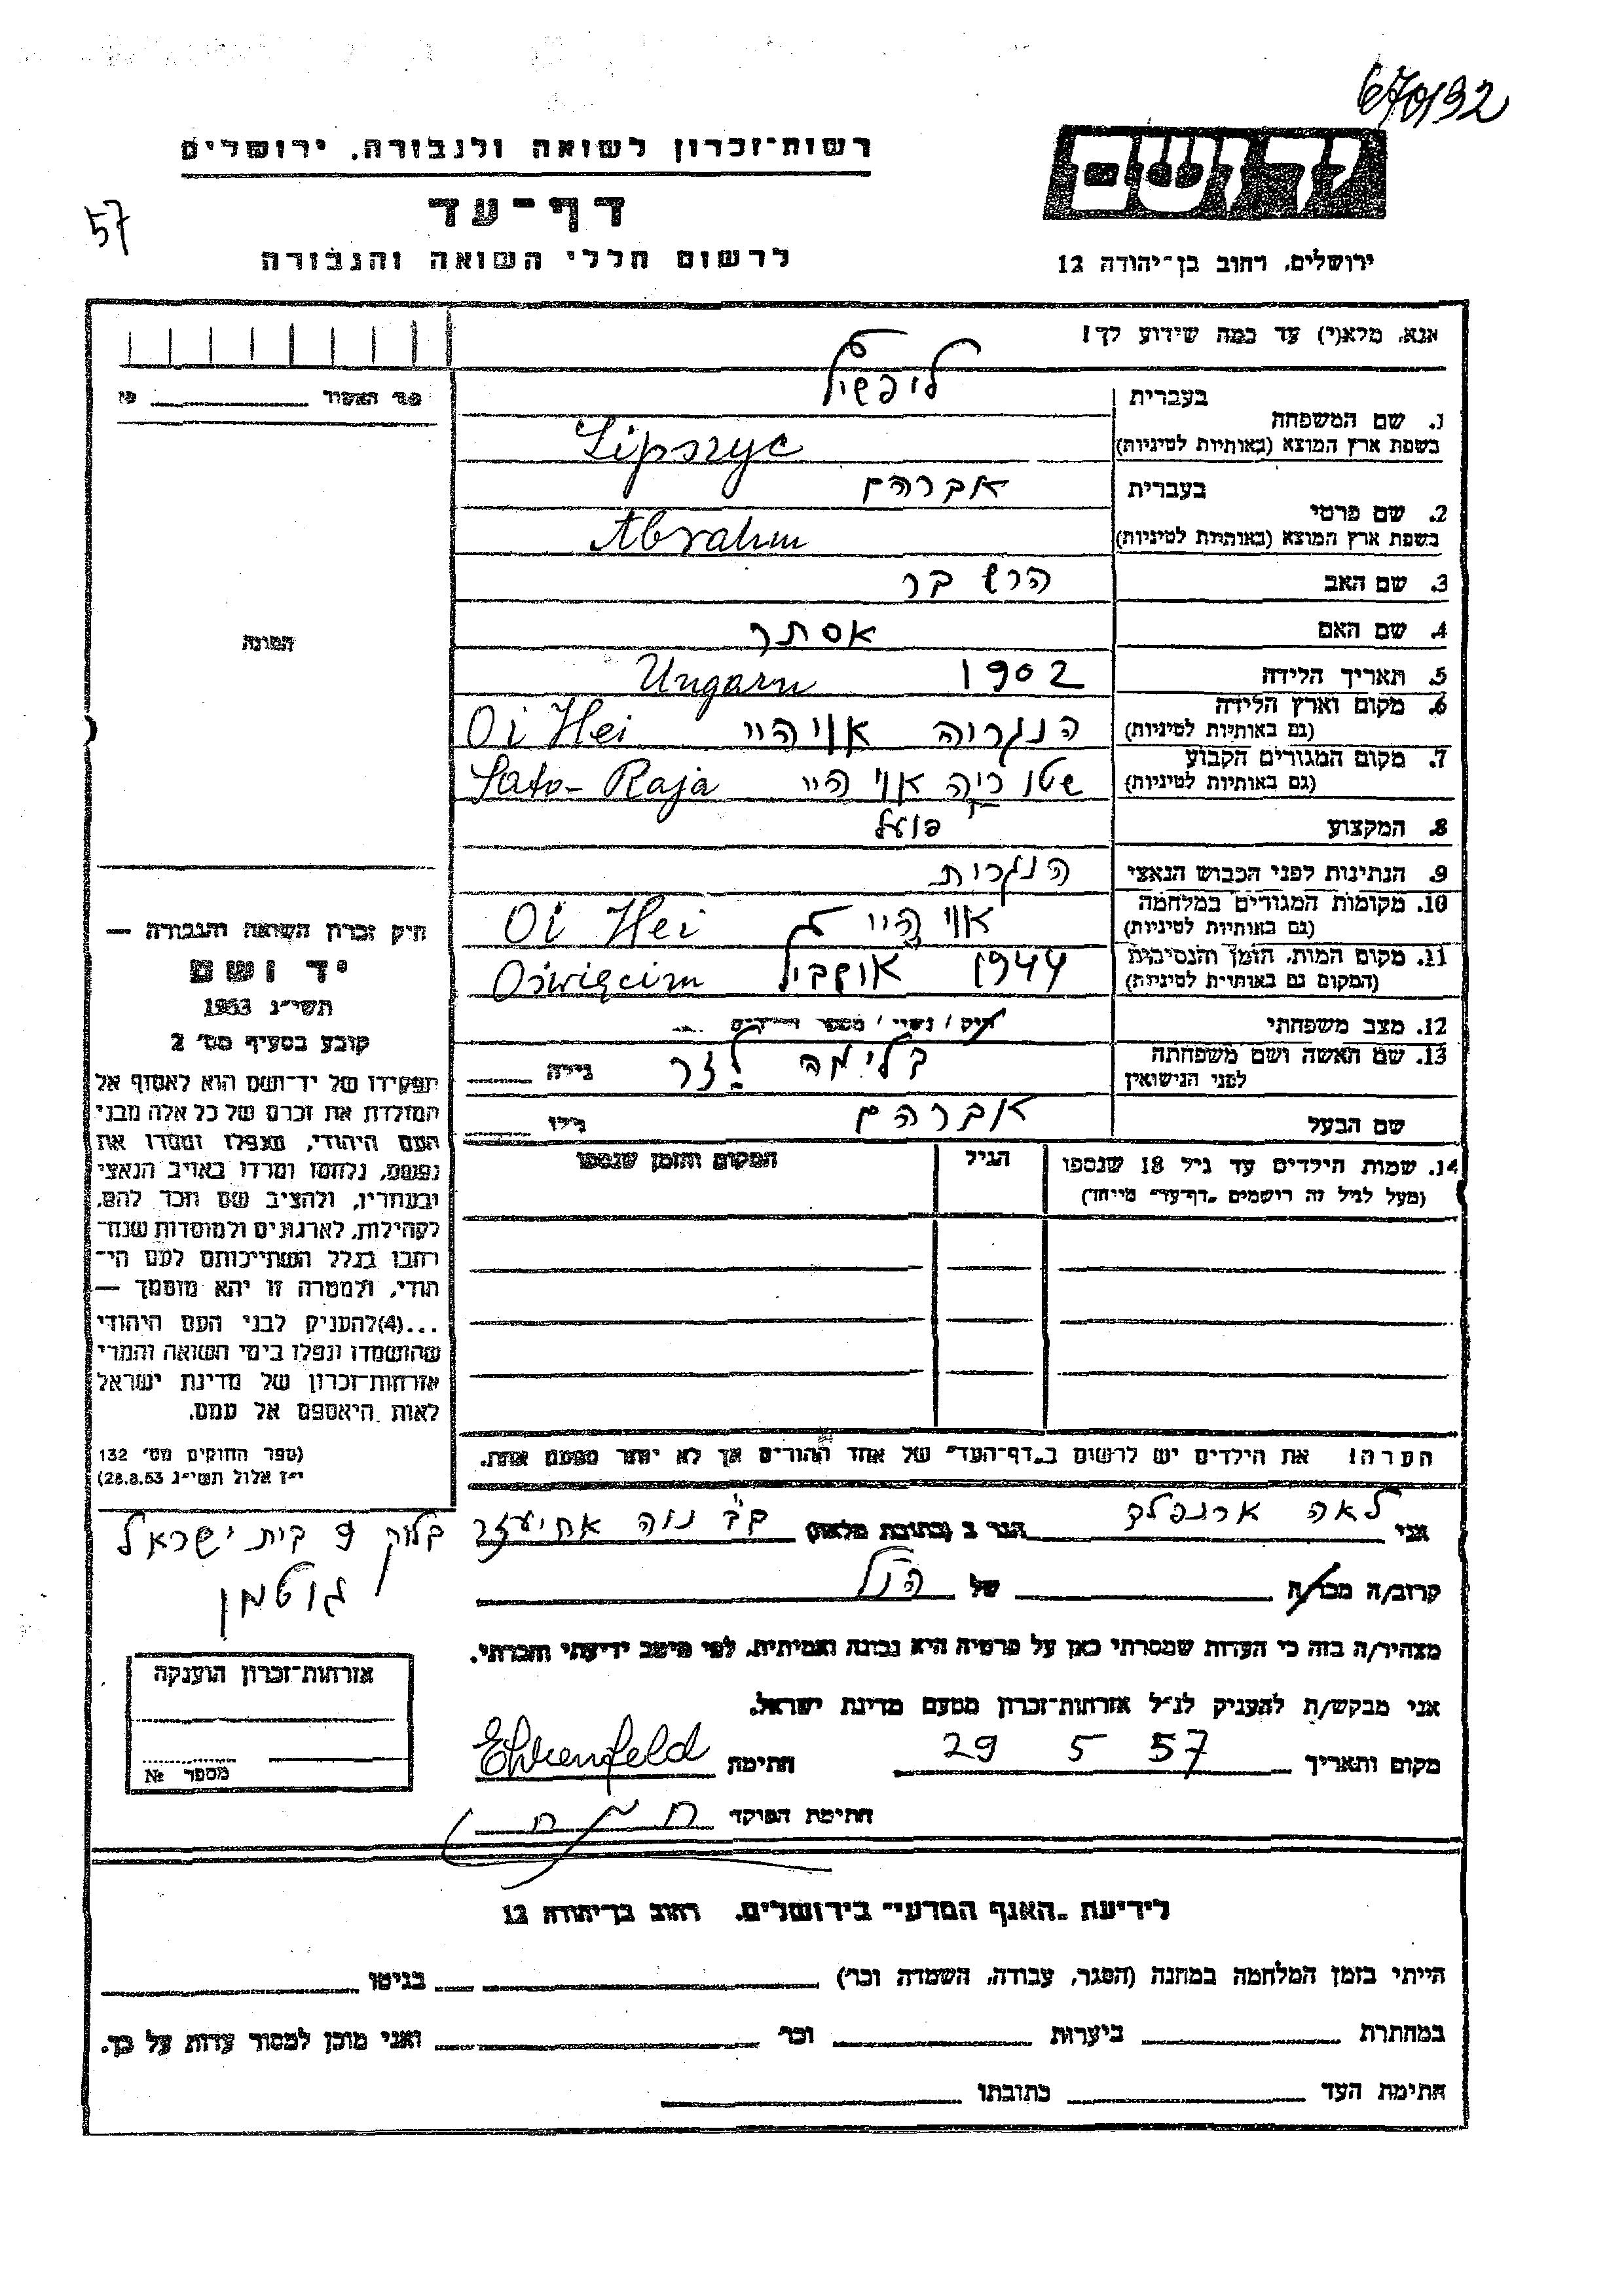 670132
רשות־זכרון לשואה ולגבורה, ירושלים
דף־עד
לרשום חללי השואה והגבורה
57
ידושם
ירושלים, רחוב בן־יהודה 12
אנא, מלא(י) עד כמה שידוע לך!
מס׳ האשור
1. שם המשפחה בעברית ליפשיץ
בשפת ארץ המוצא (באותיות לטיניות) Lipszyc
2. שם פרטי בעברית אברהם
בשפת ארץ המוצא (באותיות לטיניות) Abrahm
3. שם האב הרש בר
4. שם האם אסתר
5. תאריך הלידה 1902 Ungarn
6. מקום וארץ הלידה (גם באותיות לטיניות) הנגריה אוי היי Oi Hei
7. מקום המגורים הקבוע (גם באותיות לטיניות) שטו ריה אוי היי Sato-Raja
8. המקצוע פועל
9. הנתינות לפני הכבוש הנאצי הנגרית
10. מקומות המגורים במלחמה (גם באותיות לטיניות) אוי היי Oi Hei
11. מקום המות, הזמן והנסיבות (המקום גם באותיות לטיניות) 1944 Oświęcim
12. מצב משפחתי
13. שם האשה ושם משפחתה לפני הנישואין בלימה לזר גילה
שם הבעל אברהם גילו
14. שמות הילדים עד גיל 18 שנספו הגיל המקום והזמן שנספו
(מעל לגיל זה רושמים „דף־עד” מיוחד)
הערה! את הילדים יש לרשום ב„דף־העד” של אחד ההורים אך לא יותר מפעם אחת.
התמונה
חוק זכרון השואה והגבורה —
יד ושם
תשי״ג 1953
קובע בסעיף מס׳ 2
תפקידו של יד־ושם הוא לאסוף אל
המולדת את זכרם של כל אלה מבני
העם היהודי, שנפלו ומסרו את
נפשם, נלחמו ומרדו באויב הנאצי
ובעוזריו, ולהציב שם וזכר להם,
לקהילות, לארגונים ולמוסדות שנח־
רבו בגלל השתייכותם לעם היה־
ודי, ולמטרה זו יהא מוסמך —
...(4)להעניק לבני העם היהודי
שהושמדו ונפלו בימי השואה והמרי
אזרחות־זכרון של מדינת ישראל
לאות היאספם אל עמם.
(ספר החוקים מס׳ 132
י״ז אלול תשי״ג 28.8.53)
אני לאה ארנפלד הגר ב (כתובת מלאה) ב״ב נוה אחיעזר בלוק 9 בית ישראל
גוטמן
קרוב/ה מכר/ה של הנ״ל
מצהיר/ה בזה כי העדות שמסרתי כאן על פרטיה היא נכונה ואמיתית, לפי מיטב ידיעתי והכרתי.
אני מבקש/ת להעניק לנ״ל אזרחות־זכרון מטעם מדינת ישראל.
מקום ותאריך 29 5 57 חתימה Ehrenfeld
חתימת הפוקד
אזרחות־זכרון הוענקה
מספר №
לידיעת „האגף המדעי” בירושלים, רחוב בן־יהודה 12
הייתי בזמן המלחמה במחנה (הסגר, עבודה, השמדה וכו׳) בגיטו
במחתרת ביערות וכו׳ ואני מוכן למסור עדות על כך.
חתימת העד כתובתו